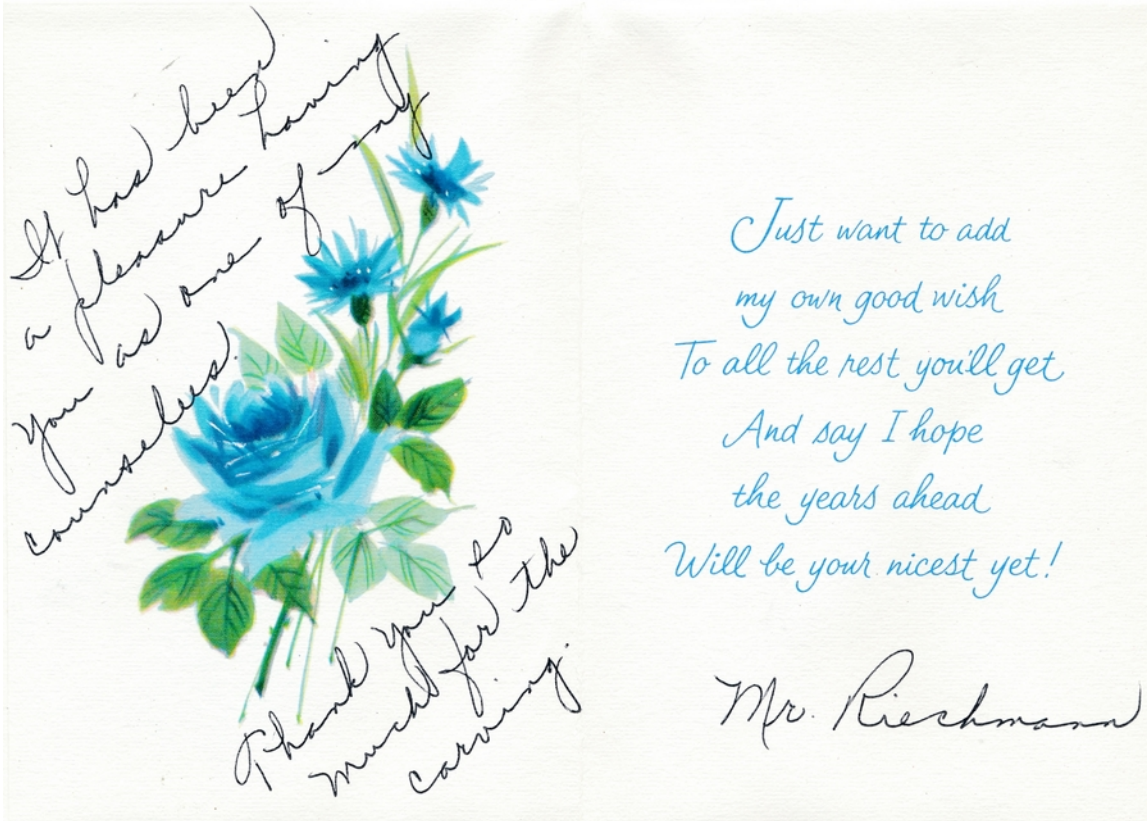 It has been
a pleasure having
you as one of my
counselees.
Thank you so
much for the
carving.
Just want to add
my own good wish
To all the rest you'll get
And say I hope
the years ahead
Will be your nicest yet!
Mr. Riechmann